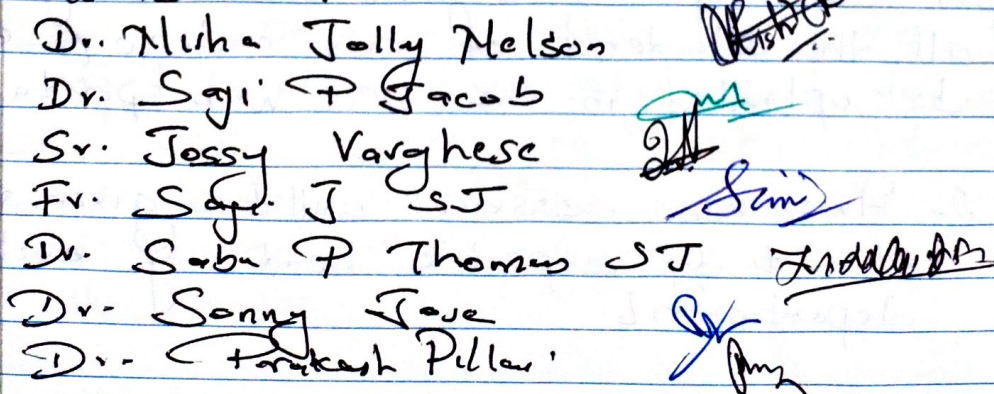 Dr. Nisha Jolly Nelson
Dr. Saji P Jacob
Sr. Jossy Varghese
Fr. Saji J SJ
Dr. Sabu P Thomas SJ
Dr. Sonny Jose
Dr. Prakash Pillai